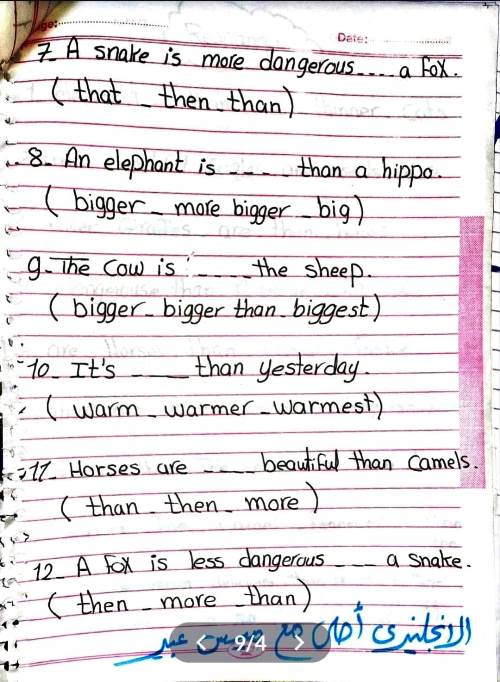 Date:
7_ A snake is more dangerous ---- a fox.
( that _ then _ than )
8_ An elephant is _ _ _ _ than a hippo.
( bigger _ more bigger _ big )
9_ The cow is _ _ _ _ the sheep.
( bigger _ bigger than _ biggest )
10_ It's ____ than yesterday.
( warm _ warmer _ warmest )
11_ Horses are ____ beautiful than camels.
( than _ then _ more )
12_ A fox is less dangerous ___ a snake.
( then _ more _ than )
الانجليزى أحلى مع ميس عبير
< 9/4 >